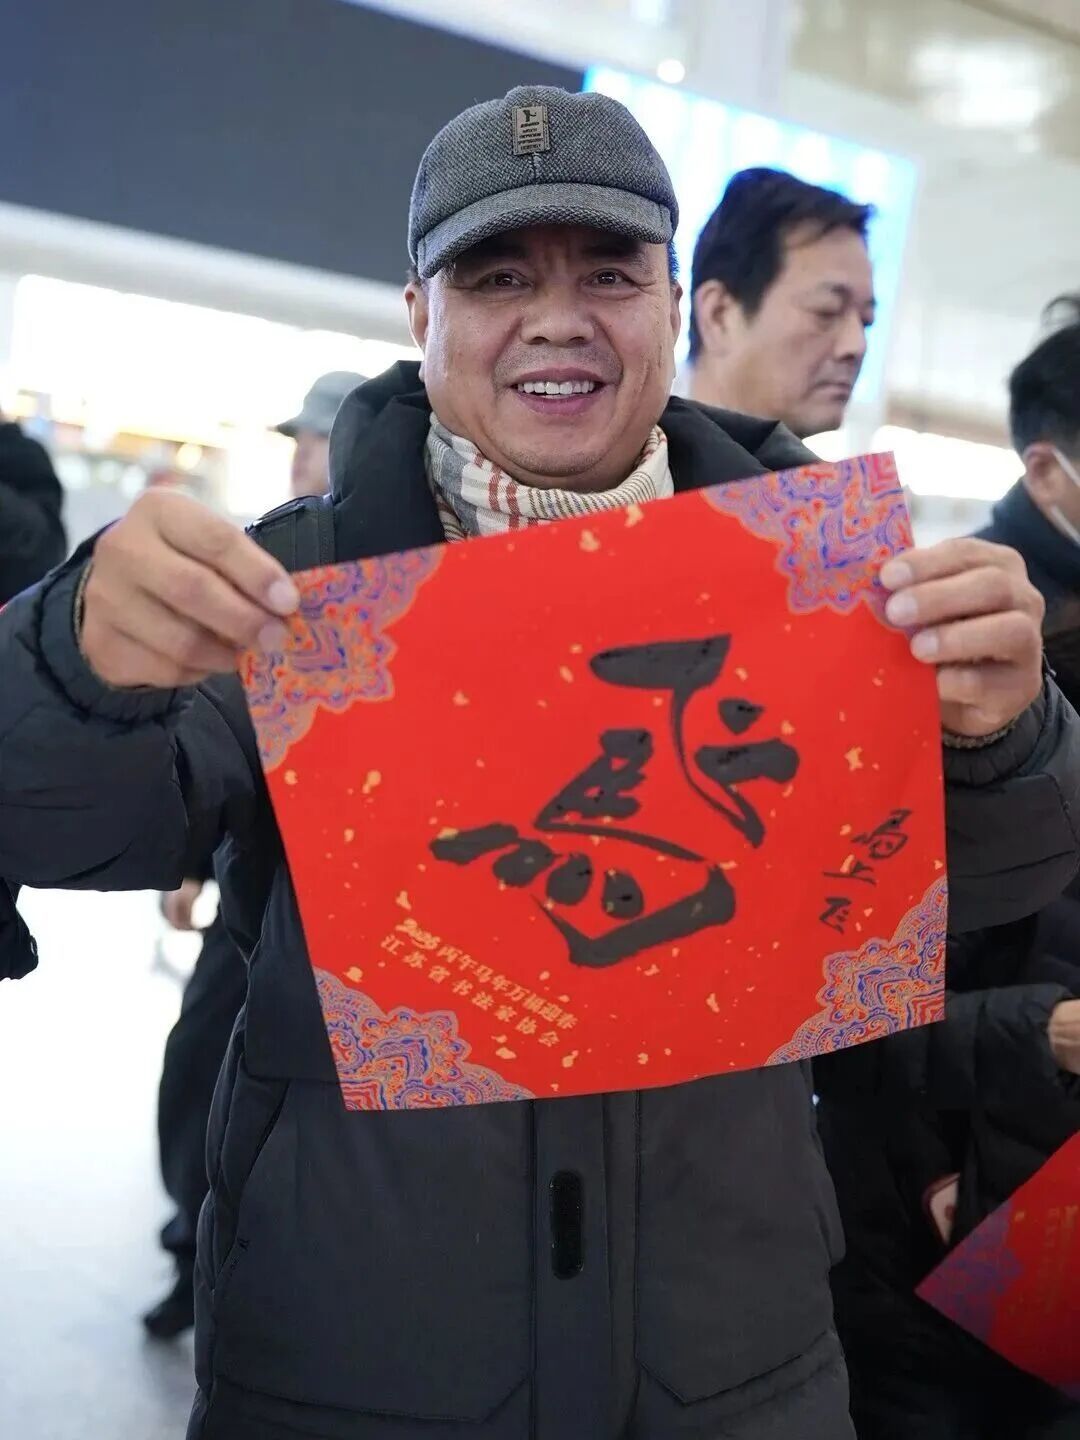 飞馬
馬上飞
2026丙午马年万福迎春
江苏省书法家协会